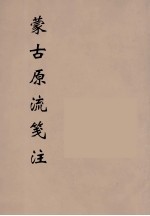 蒙古原流笺注